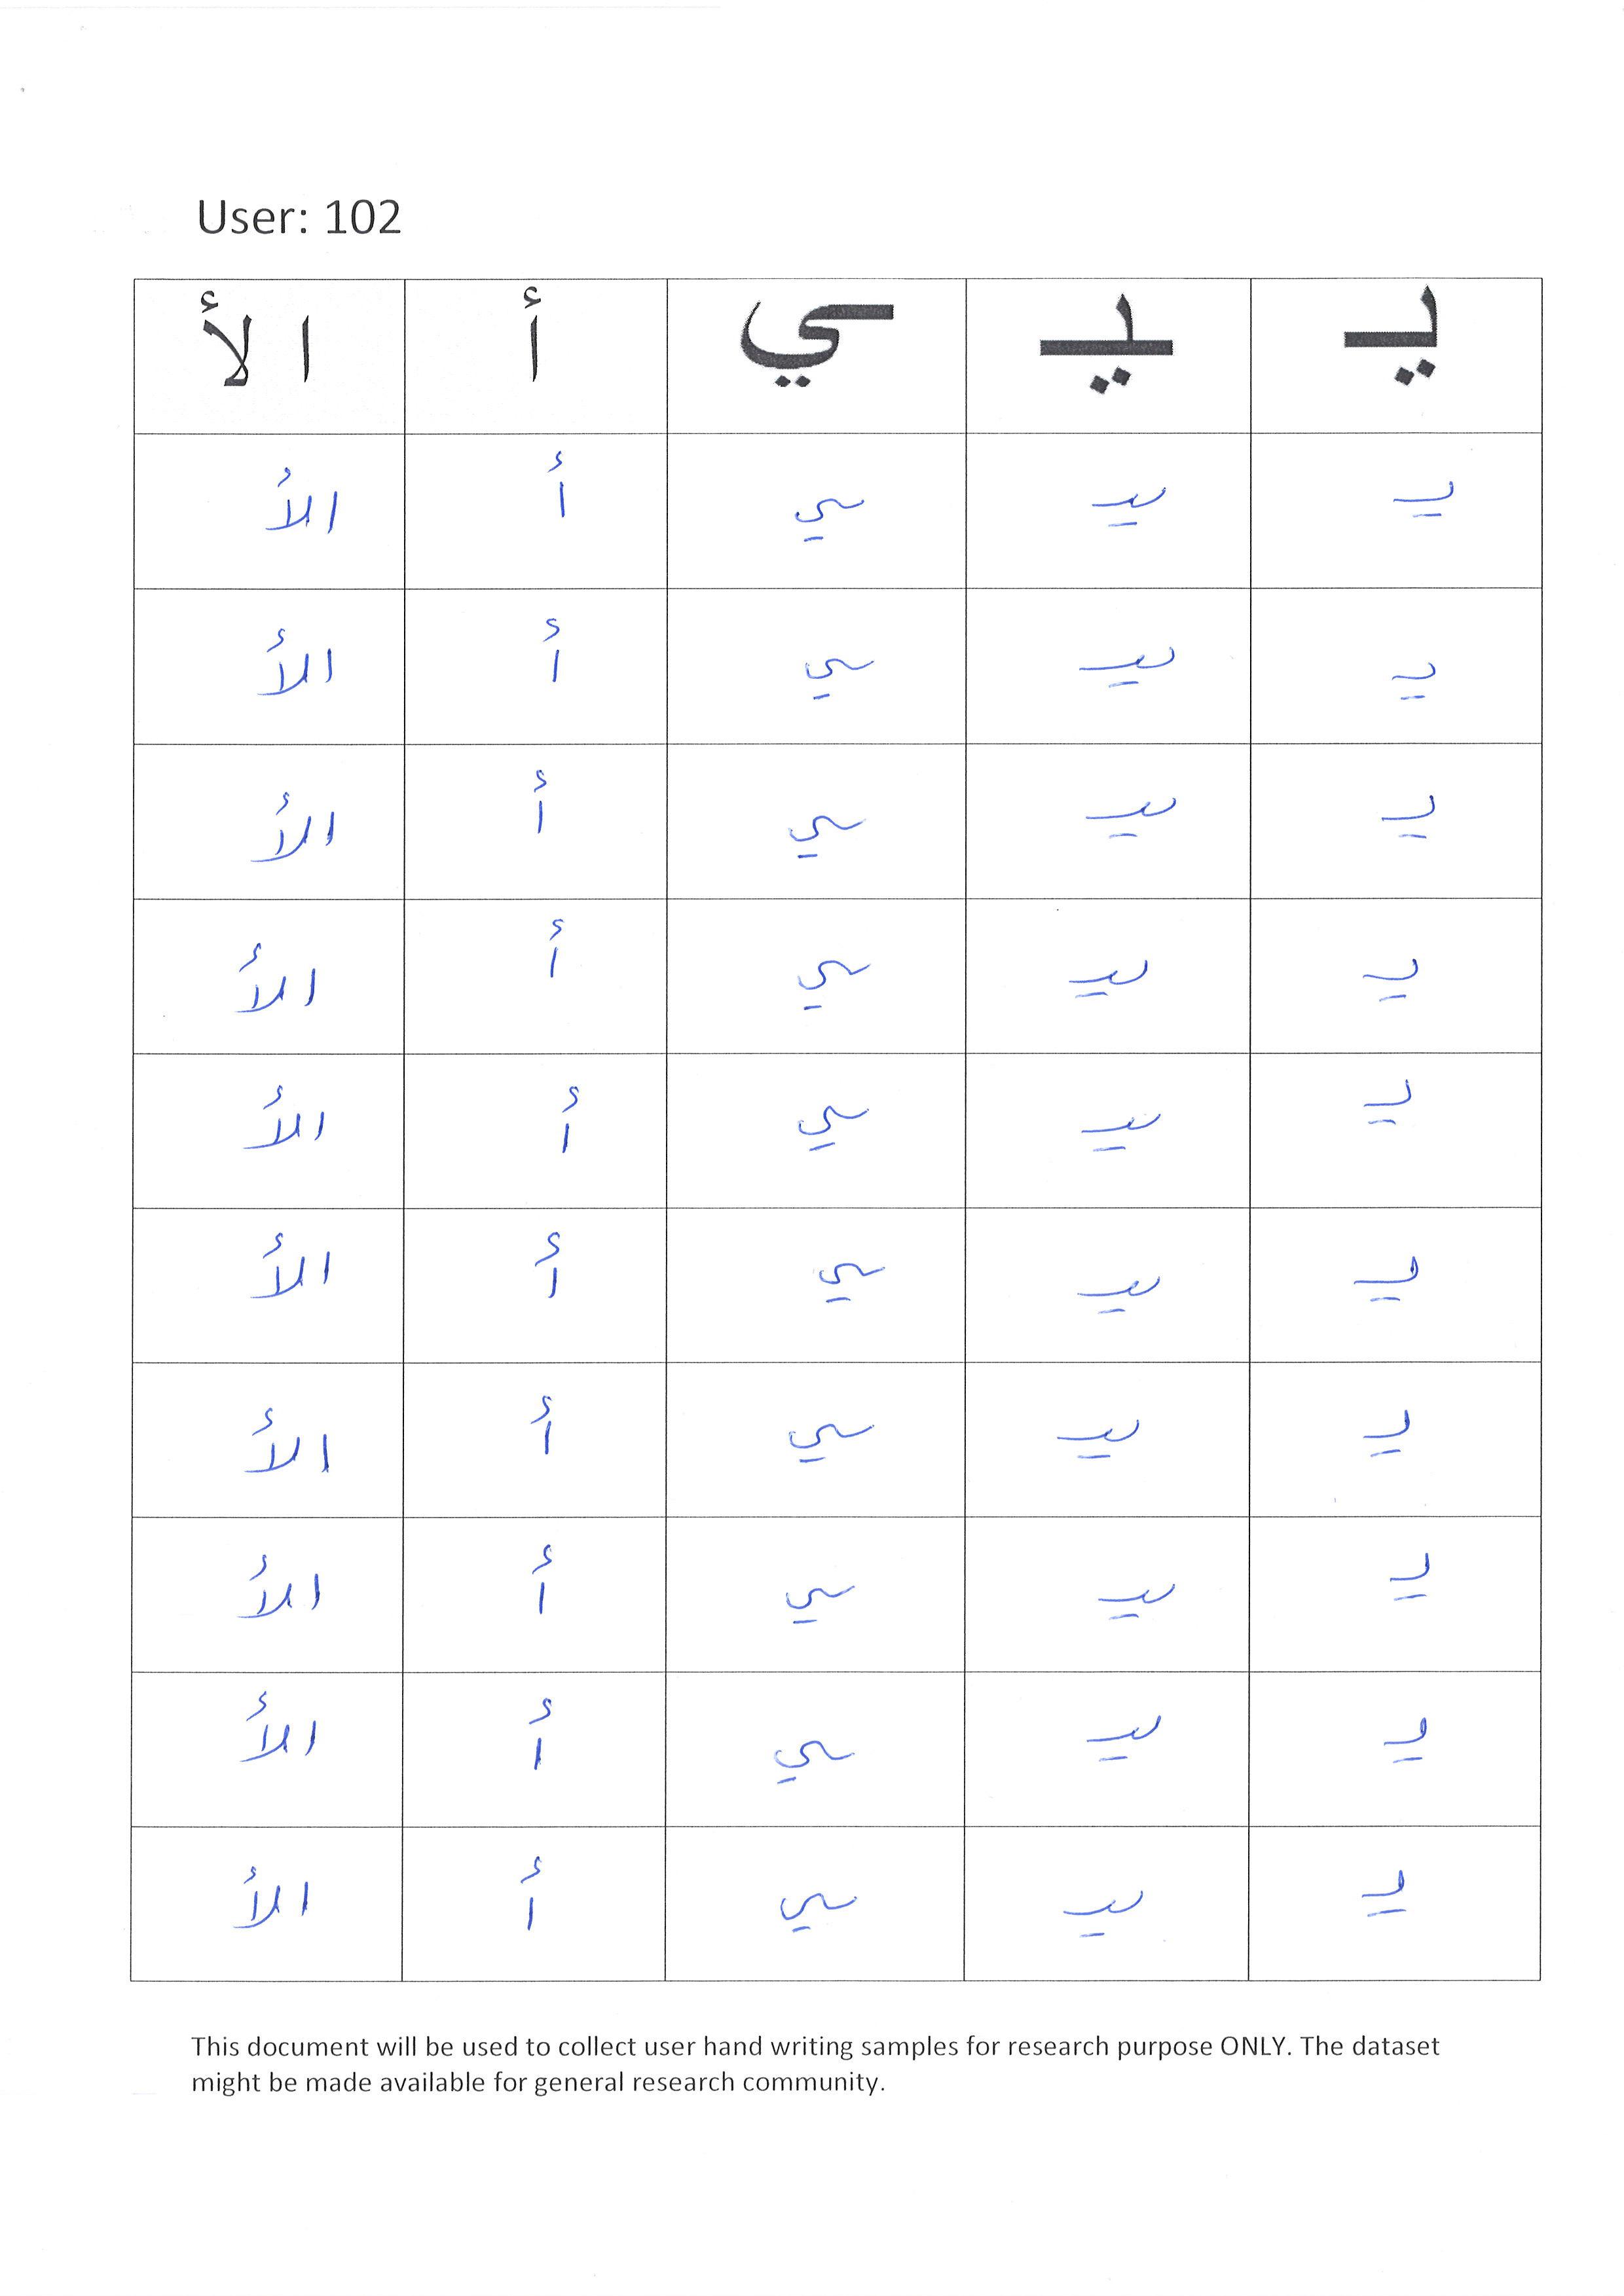 User: 102
يـ ـيـ ـي أ الأ
يـ ـيـ ـي أ الأ
يـ ـيـ ـي أ الأ
يـ ـيـ ـي أ الأ
يـ ـيـ ـي أ الأ
يـ ـيـ ـي أ الأ
يـ ـيـ ـي أ الأ
يـ ـيـ ـي أ الأ
يـ ـيـ ـي أ الأ
يـ ـيـ ـي أ الأ
يـ ـيـ ـي أ الأ
This document will be used to collect user hand writing samples for research purpose ONLY. The dataset
might be made available for general research community.